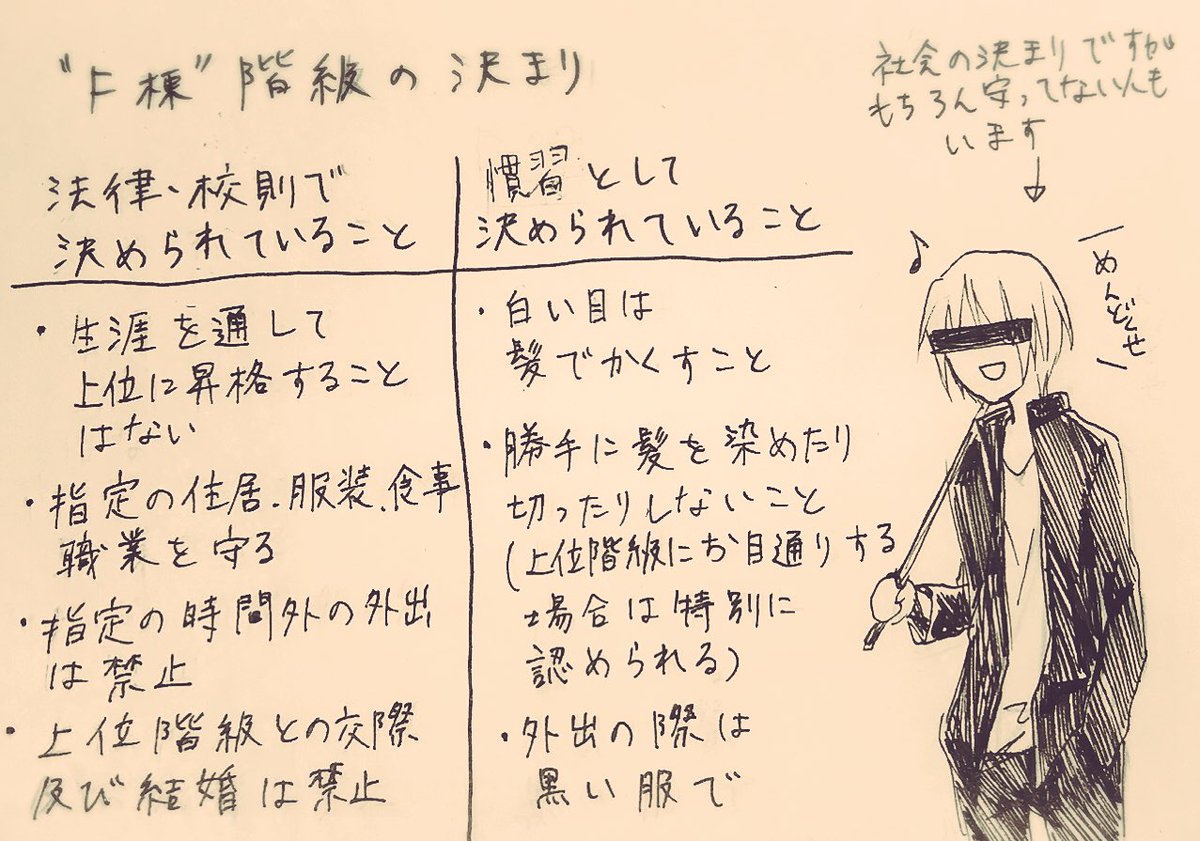 "F棟"階級の決まり
社会の決まりですが
もちろん守ってない人も
います
法律、校則で
決められていること
慣習として
決められていること
・生涯を通して
上位に昇格すること
はない
・指定の住居、服装、食事
職業を守る
・指定の時間外の外出
は禁止
・上位階級との交際
及び結婚は禁止
・白い目は
髪でかくすこと
・勝手に髪を染めたり
切ったりしないこと
(上位階級にお目通りする
場合は特別に
認められる)
・外出の際は
黒い服で
めんどくせ